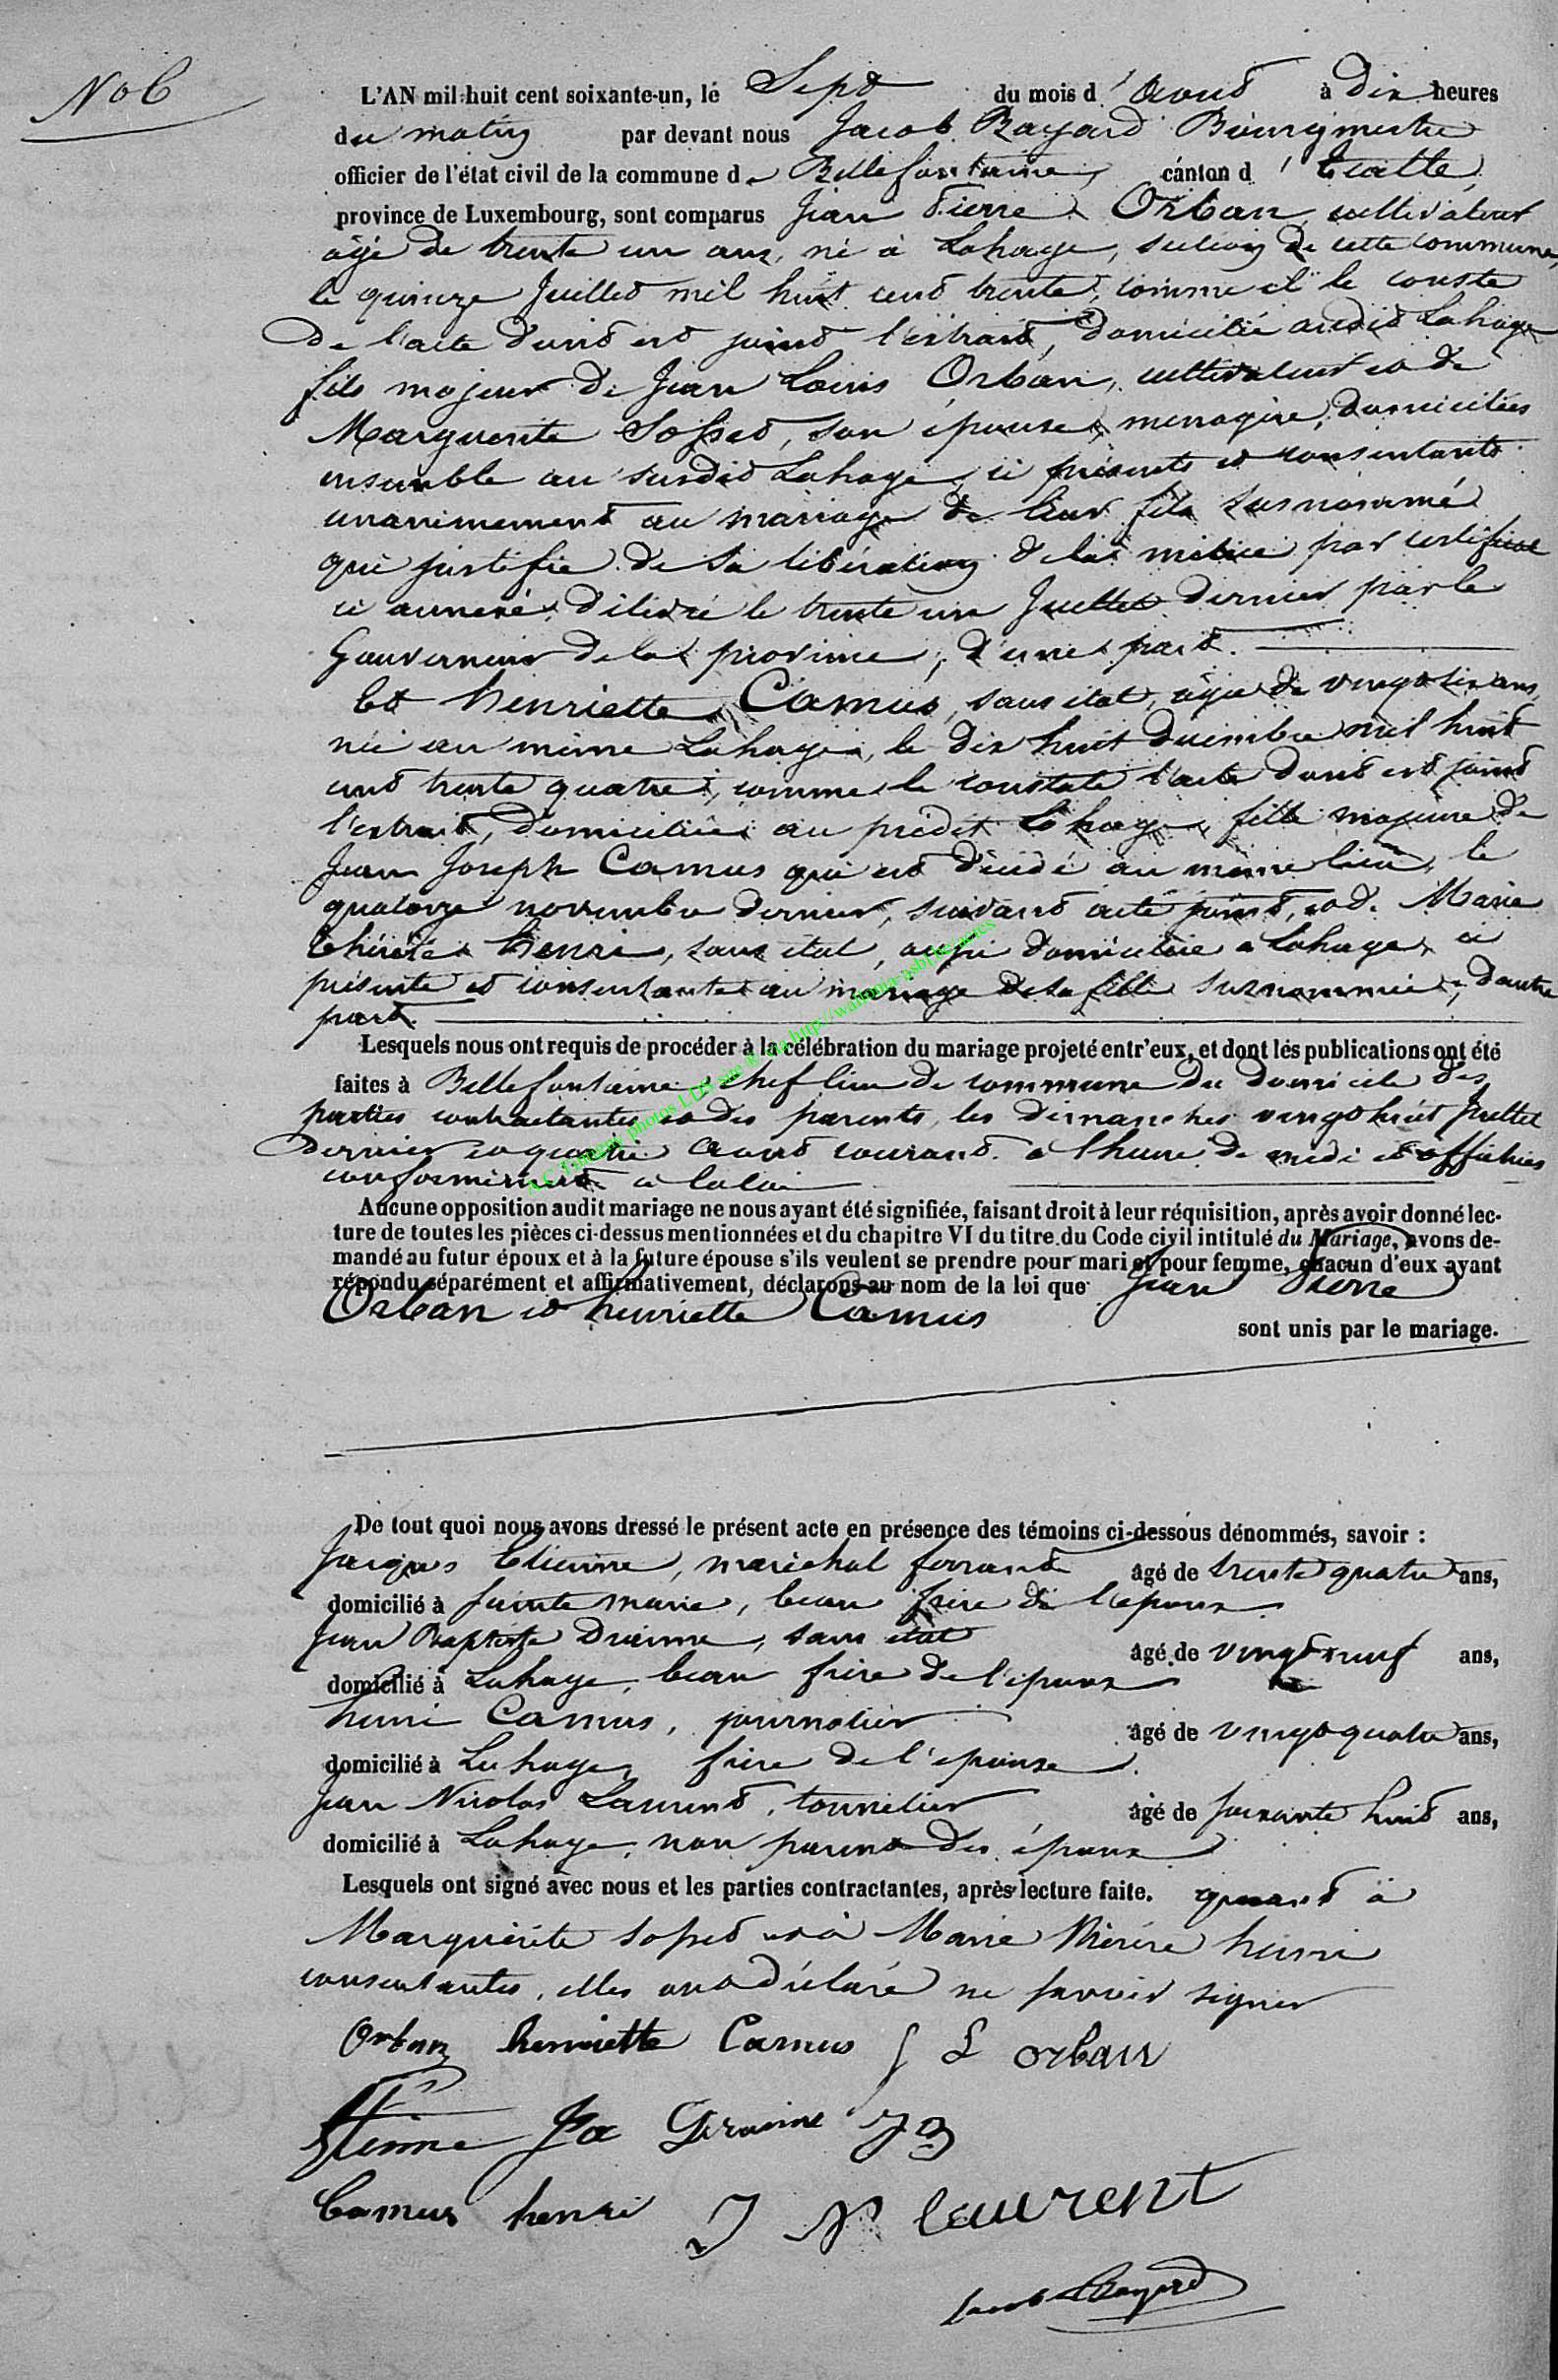 No 6
L'AN mil huit cent soixante-un, le Sept du mois d'Aout à Dix heures
du matin par devant nous Jacob Bayard Bourgmestre
officier de l'état civil de la commune de Bellefontaine, canton d'Etalle,
province de Luxembourg, sont comparus Jean Pierre Orban, cultivateur
âgé de trente un ans, né à Lahage, section de cette commune,
le quinze Juillet mil huit cent trente, comme il le conste
de l'acte dont est joint l'extrait, domicilié audit Lahage
fils majeur de Jean Louis Orban, cultivateur et de
Marguerite Sosset, son épouse, menagère, domiciliés
ensemble au susdit Lahage, ci présents et consentants
unanimement au mariage de leur fils susnommé
qui justifie de sa libération de la milice par certificat
ci annexé, délivré le trente un Juillet dernier par le
Gouverneur de la province, d'une part.
Et henriette Camus, sans état, âgée de vingt six ans,
née au même Lahage, le dix huit decembre mil huit
cent trente quatre, comme le constate l'acte dont est joint
l'extrait, domiciliée au prédit Lahage, fille majeure de
Jean Joseph Camus qui est décédé au même lieu, le
quatorze novembre dernier, suivant acte joint, et de Marie
thérèse henri, sans état, aussi domiciliée à Lahage, ci
présente et consentante au mariage de sa fille surnommée, d'autre
part.
Lesquels nous ont requis de procéder à la célébration du mariage projeté entr'eux, et dont les publications ont été
faites à Bellefontaine, chef lieu de commune du domicile des
parties contractantes et des parents, les dimanches vingt huit juillet
dernier et quatre Aout courant à l'heure de midi et affichées
conformément à la loi
Aucune opposition audit mariage ne nous ayant été signifiée, faisant droit à leur réquisition, après avoir donné lec-
ture de toutes les pièces ci-dessus mentionnées et du chapitre VI du titre du Code civil intitulé du Mariage, avons de-
mandé au futur époux et à la future épouse s'ils veulent se prendre pour mari et pour femme, chacun d'eux ayant
répondu séparément et affirmativement, déclarons au nom de la loi que Jean Pierre
Orban et henriette Camus
sont unis par le mariage.
De tout quoi nous avons dressé le présent acte en présence des témoins ci-dessous dénommés, savoir :
Jacques Etienne, maréchal ferrant âgé de trente quatre ans,
domicilié à sainte marie, beau frère de l'epoux
Jean Baptiste Draime, sans état âgé de vingt neuf ans,
domicilié à Lahage, beau frère de l'epoux
henri Camus, journalier âgé de vingt quatre ans,
domicilié à Lahage, frère de l'epouse
Jean Nicolas Laurent, tonnelier âgé de soixante huit ans,
domicilié à Lahage, non parent des époux
Lesquels ont signé avec nous et les parties contractantes, après lecture faite. quant à
Marguerite Sosset et à Marie thérèse henri
consentantes, elles ont déclaré ne savoir signer
Orban henriette Camus J L orban
Etienne Jx Draime JB
Camus henri J N laurent
Jacob Bayard